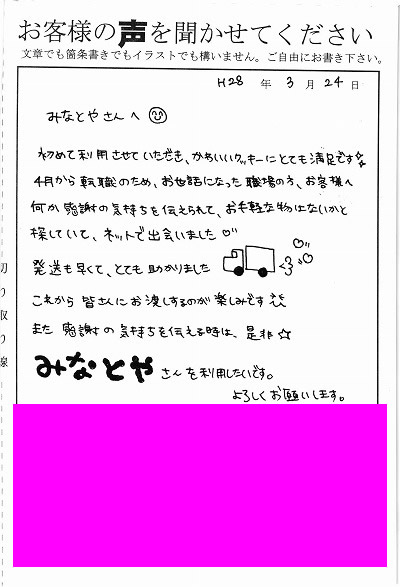 お客様の声を聞かせてください
文章でも箇条書きでもイラストでも構いません。ご自由にお書き下さい。
H28 年 3 月 24 日
みなとやさんへ
初めて利用させていただき、かわいいクッキーにとても満足です☆
4月から転職のため、お世話になった職場の方、お客様へ
何か感謝の気持ちを伝えられて、お手軽な物はないかと
探していて、ネットで出会いました♡
発送も早くて、とても助かりました
これから皆さんにお渡しするのが楽しみです
また感謝の気持ちを伝える時は、是非☆
みなとやさんを利用したいです。
よろしくお願いします。
切り取り線